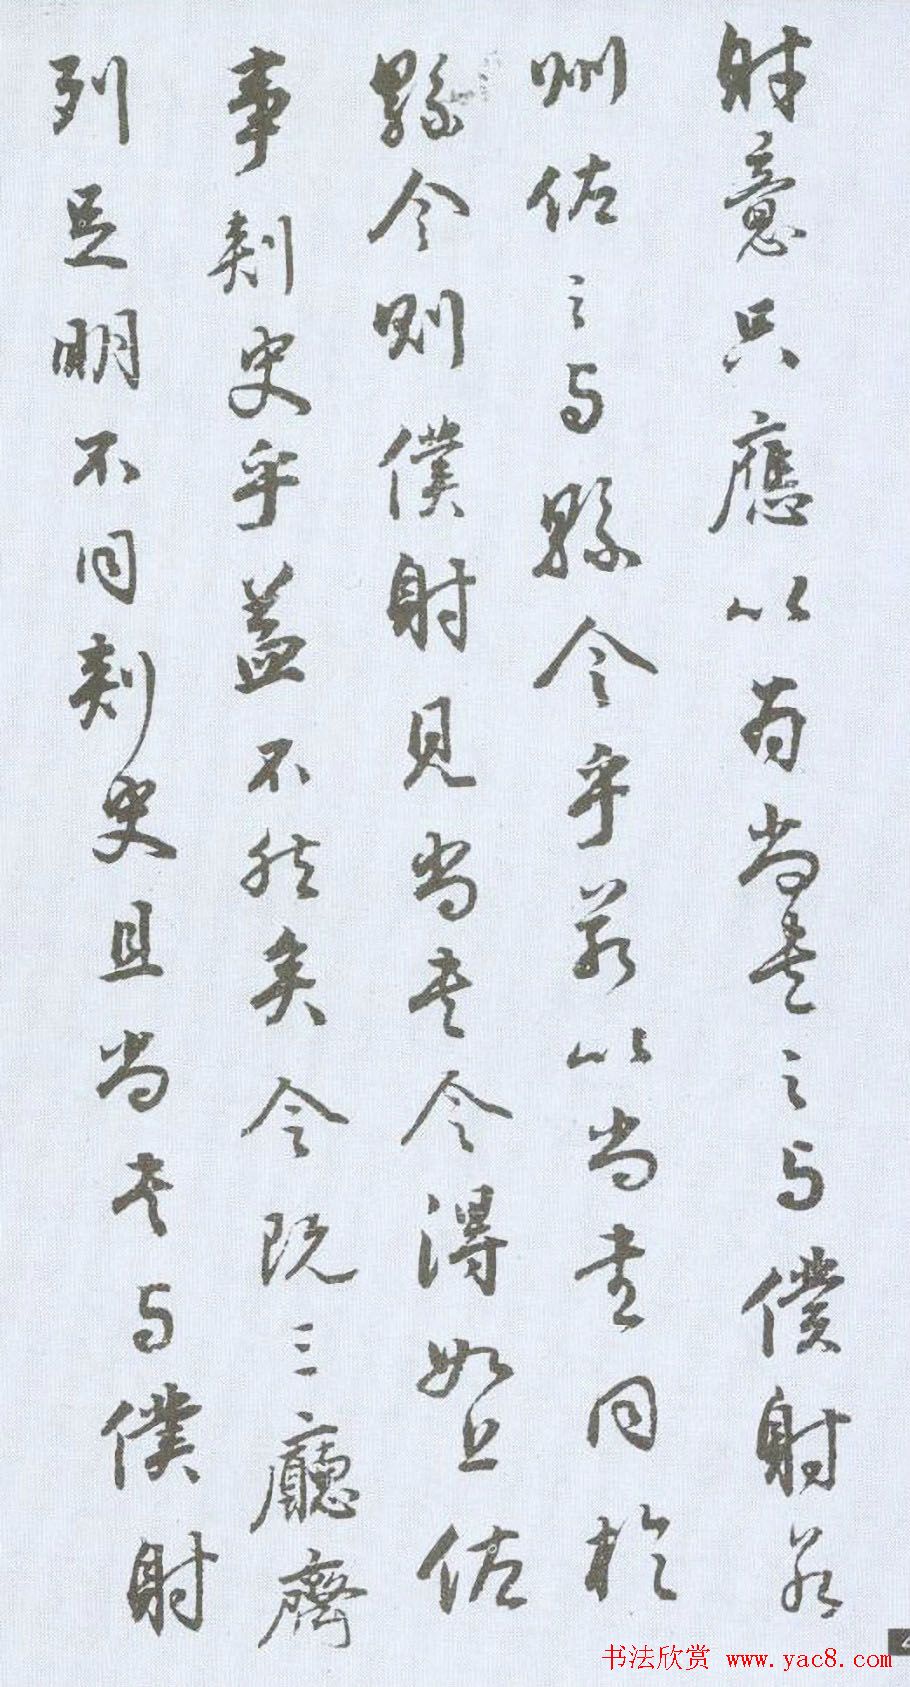 射意只應以為尚書之与僕射若
州佐之与縣令乎若以尚書同於
縣令則僕射見尚書令得如上佐
事刺史乎盖不然矣今既三廳齊
列足明不同刺史且尚書与僕射
书法欣赏 www.yac8.com